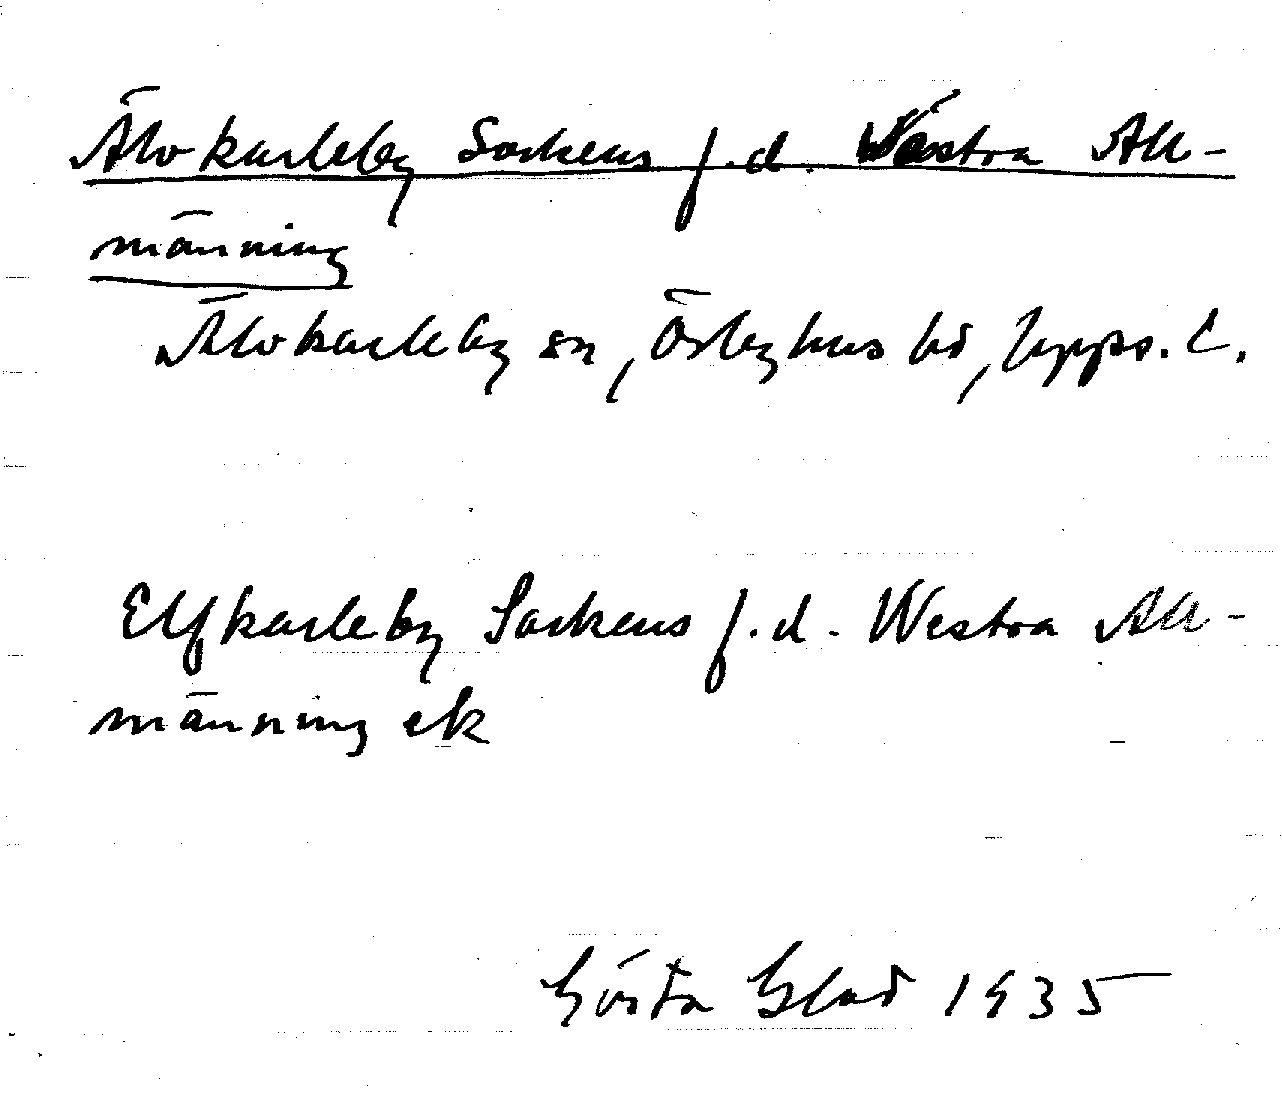 Älvkarleby Sockens f.d. Västra All-
männing
Älvkarleby sn, Örbyhus hd, Upps. l.
Elfkarleby Sockens f.d. Westra All-
männing ek
Gösta Blad 1935